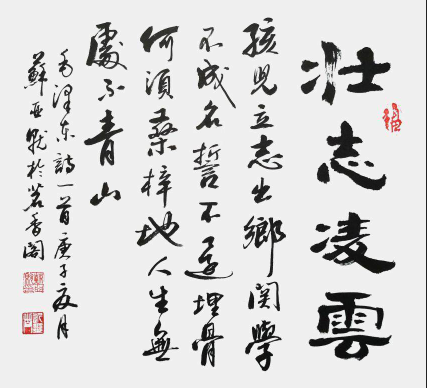 壯志凌雲
孩兒立志出鄉関學
不成名誓不還埋骨
何須桑梓地人生無
處不青山
毛澤東詩一首庚子夏月
蘇亞於茗香閣